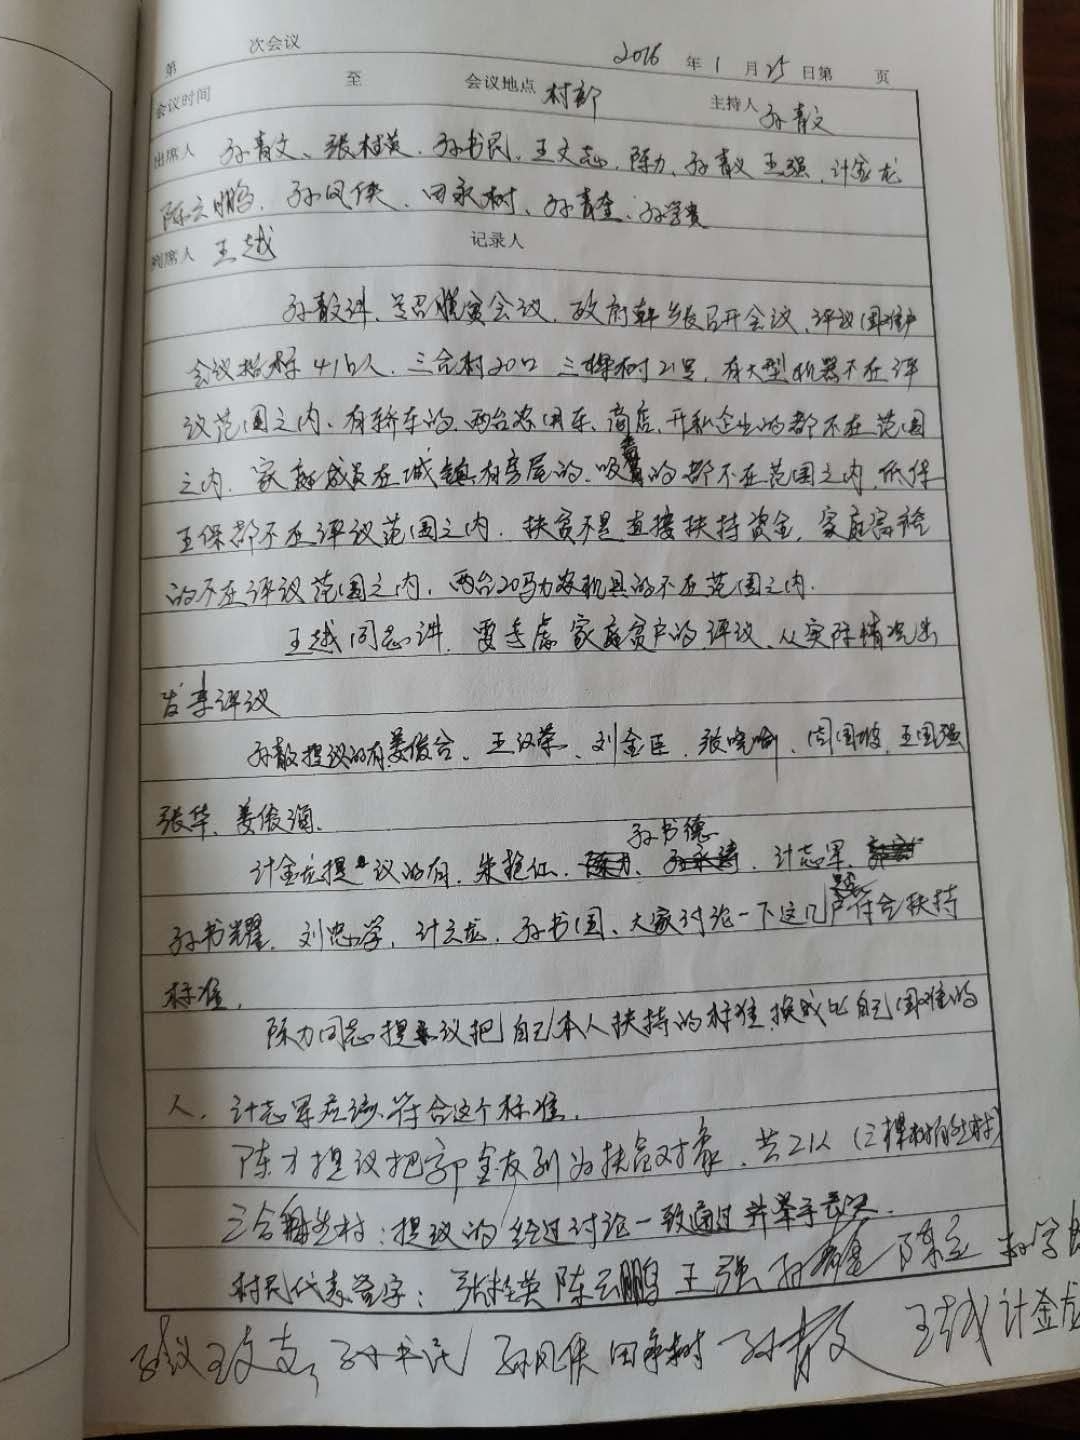 第 次会议 2016年1月25日第 页
会议时间 至 会议地点 村部 主持人 孙青文
出席人 孙青文、张桂英、孙书民、王文志、陈力、孙青义 王强、计金龙
陈云鹏、孙凤侠、田永树、孙青奎、孙学贵
列席人 王越 记录人
孙青文讲、号召脱贫会议、政府韩乡长召开会议、评议困难户
会议指标41口人、三合村20口 三棵树21口、有大型机器不在评
议范围之内、有轿车的、两台农用车、商店、开私企业的都不在范围
之内、家庭成员在城镇有房屋的、吸毒的都不在范围之内、低保
五保都不在评议范围之内、扶贫不是直接扶持资金、家庭富裕
的不在评议范围之内、两台20马力农机具的不在范围之内.
王越同志讲、要考虑家庭贫户的评议、从实际情况出
发来评议
孙青文提议的有姜俊合、王汉荣、刘金臣、张晓 、周国 、王国强
张华、姜俊 、
孙书德
计金龙提议的有、朱艳红、陈力、孙永涛、计志军、
孙书耀、刘忠学、计云龙、孙书国、大家讨论一下这几户是否符合扶持
标准、
陈力同志提议把自己本人扶持的标准换成比自己困难的
人、计志军应该符合这个标准、
陈力提议把郭金友列为扶贫对象、共21人（三棵树自然村）
三合自然村：提议的经过讨论一致通过并举手表决.
村民代表签字：张桂英 陈云鹏 王强 孙青奎 陈立 孙学
孙议 王文志 孙书民 孙凤侠 田永树 孙青文 王越 计金龙